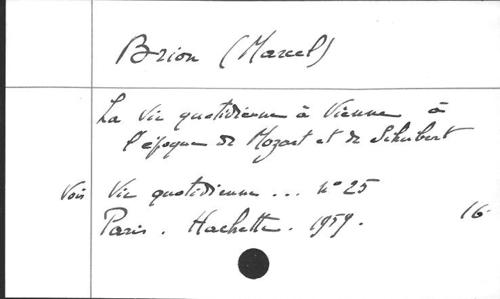 Brion (Marcel)
La Vie quotidienne à Vienne à
l'époque de Mozart et de Schubert
Voir Vie quotidienne ... n° 25
Paris. Hachette. 1959. 16.